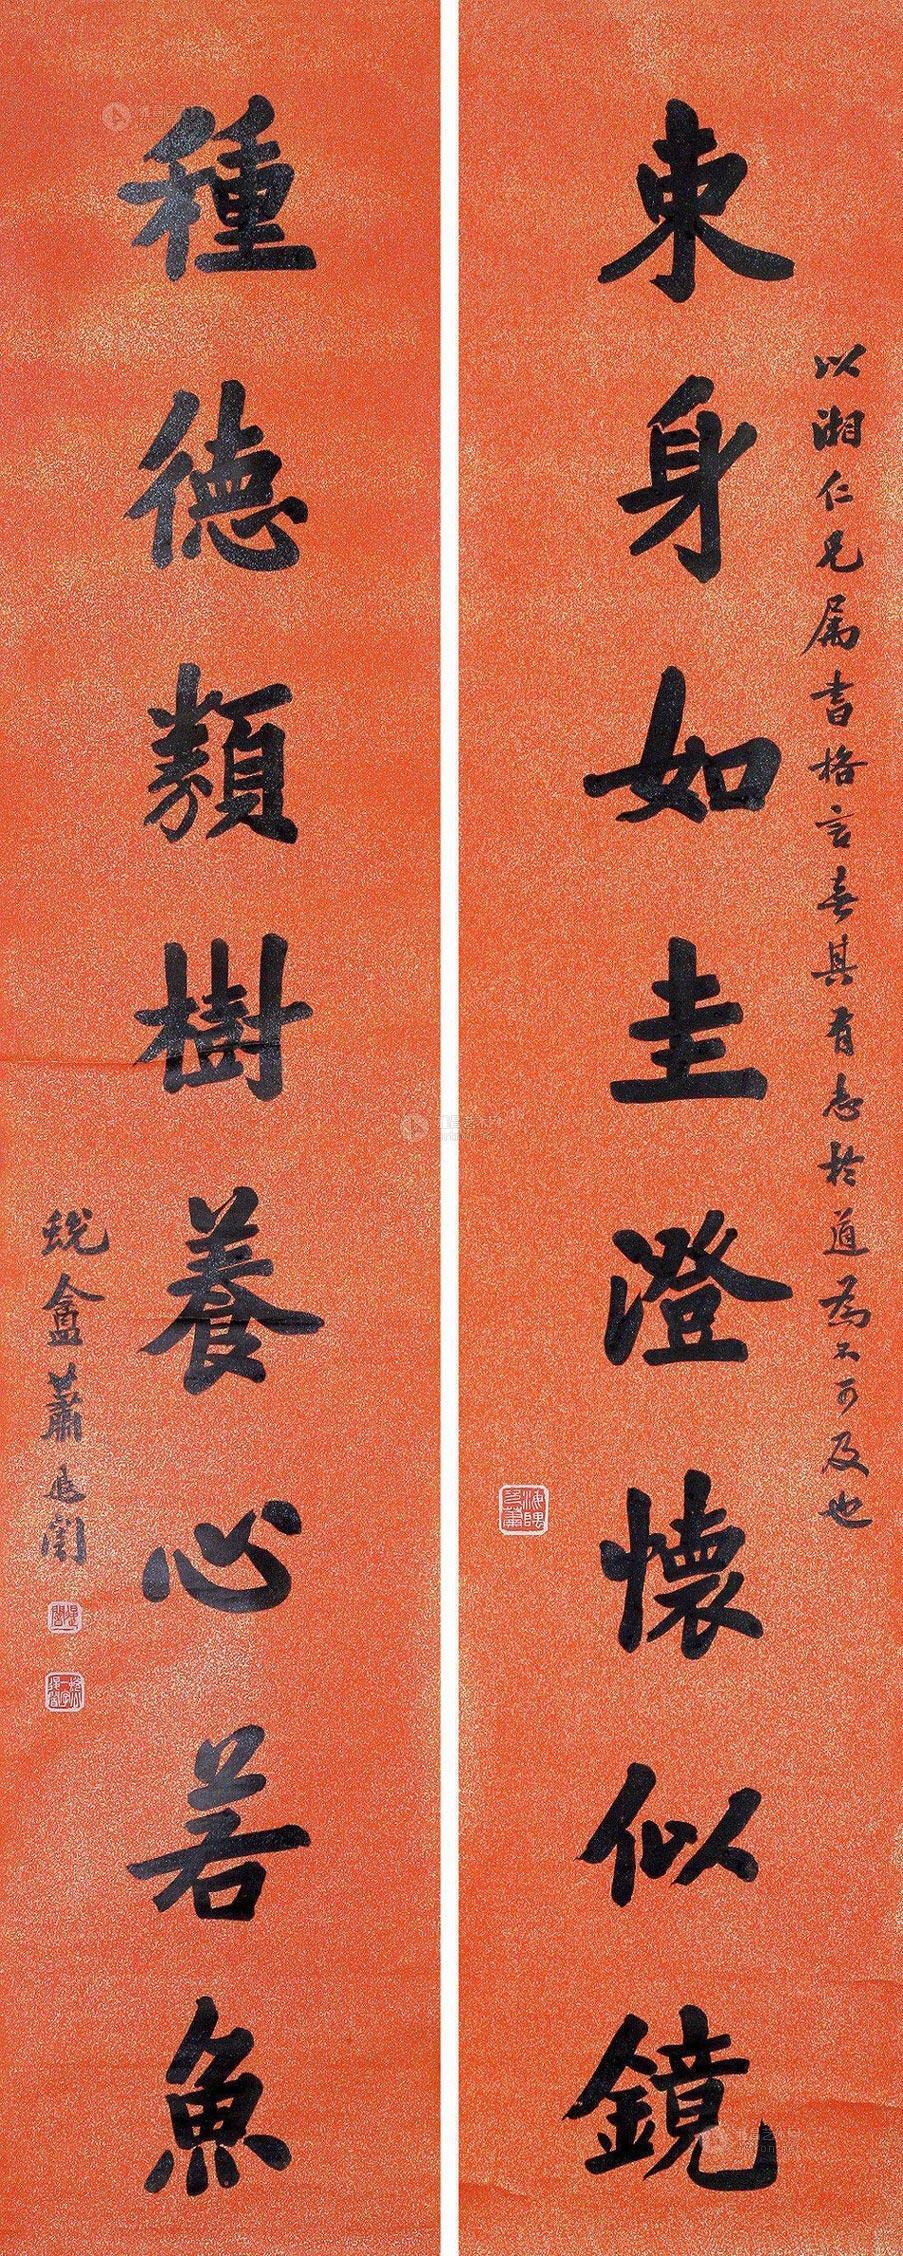 以湘仁兄属書格言喜其有志於道為不可及也
束身如圭澄懷似鏡
種德類樹養心若魚
蛻盦蕭退闇